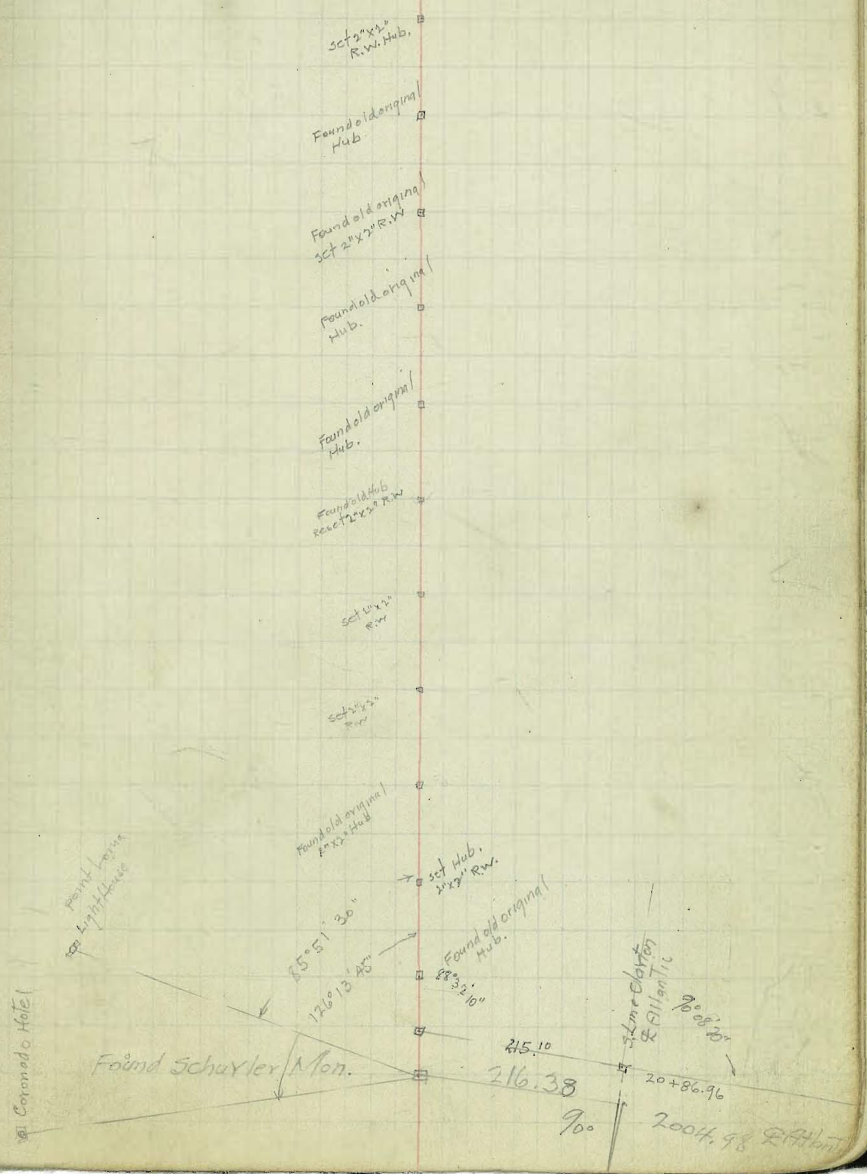 set 2"x2"
R.W. Hub.
Found old original
Hub.
Found old original
set 2"x2" R.W
Found old original
Hub.
Found old original
Hub.
Found old Hub
Reset 2"x2" R.W
set 2"x2"
R.W
set 2"x2"
R.W
Found old original
2"x2" Hub
set Hub.
2"x2" R.W.
Point Loma
Light House
85° 51' 30"
126° 13' 45"
Found old original
Hub.
88° 32' 10"
Coronado Hotel
Found Schuyler Mon.
215.10
216.38
90°
℄ Atlantic
90° 08' 20"
20+86.96
2004.98